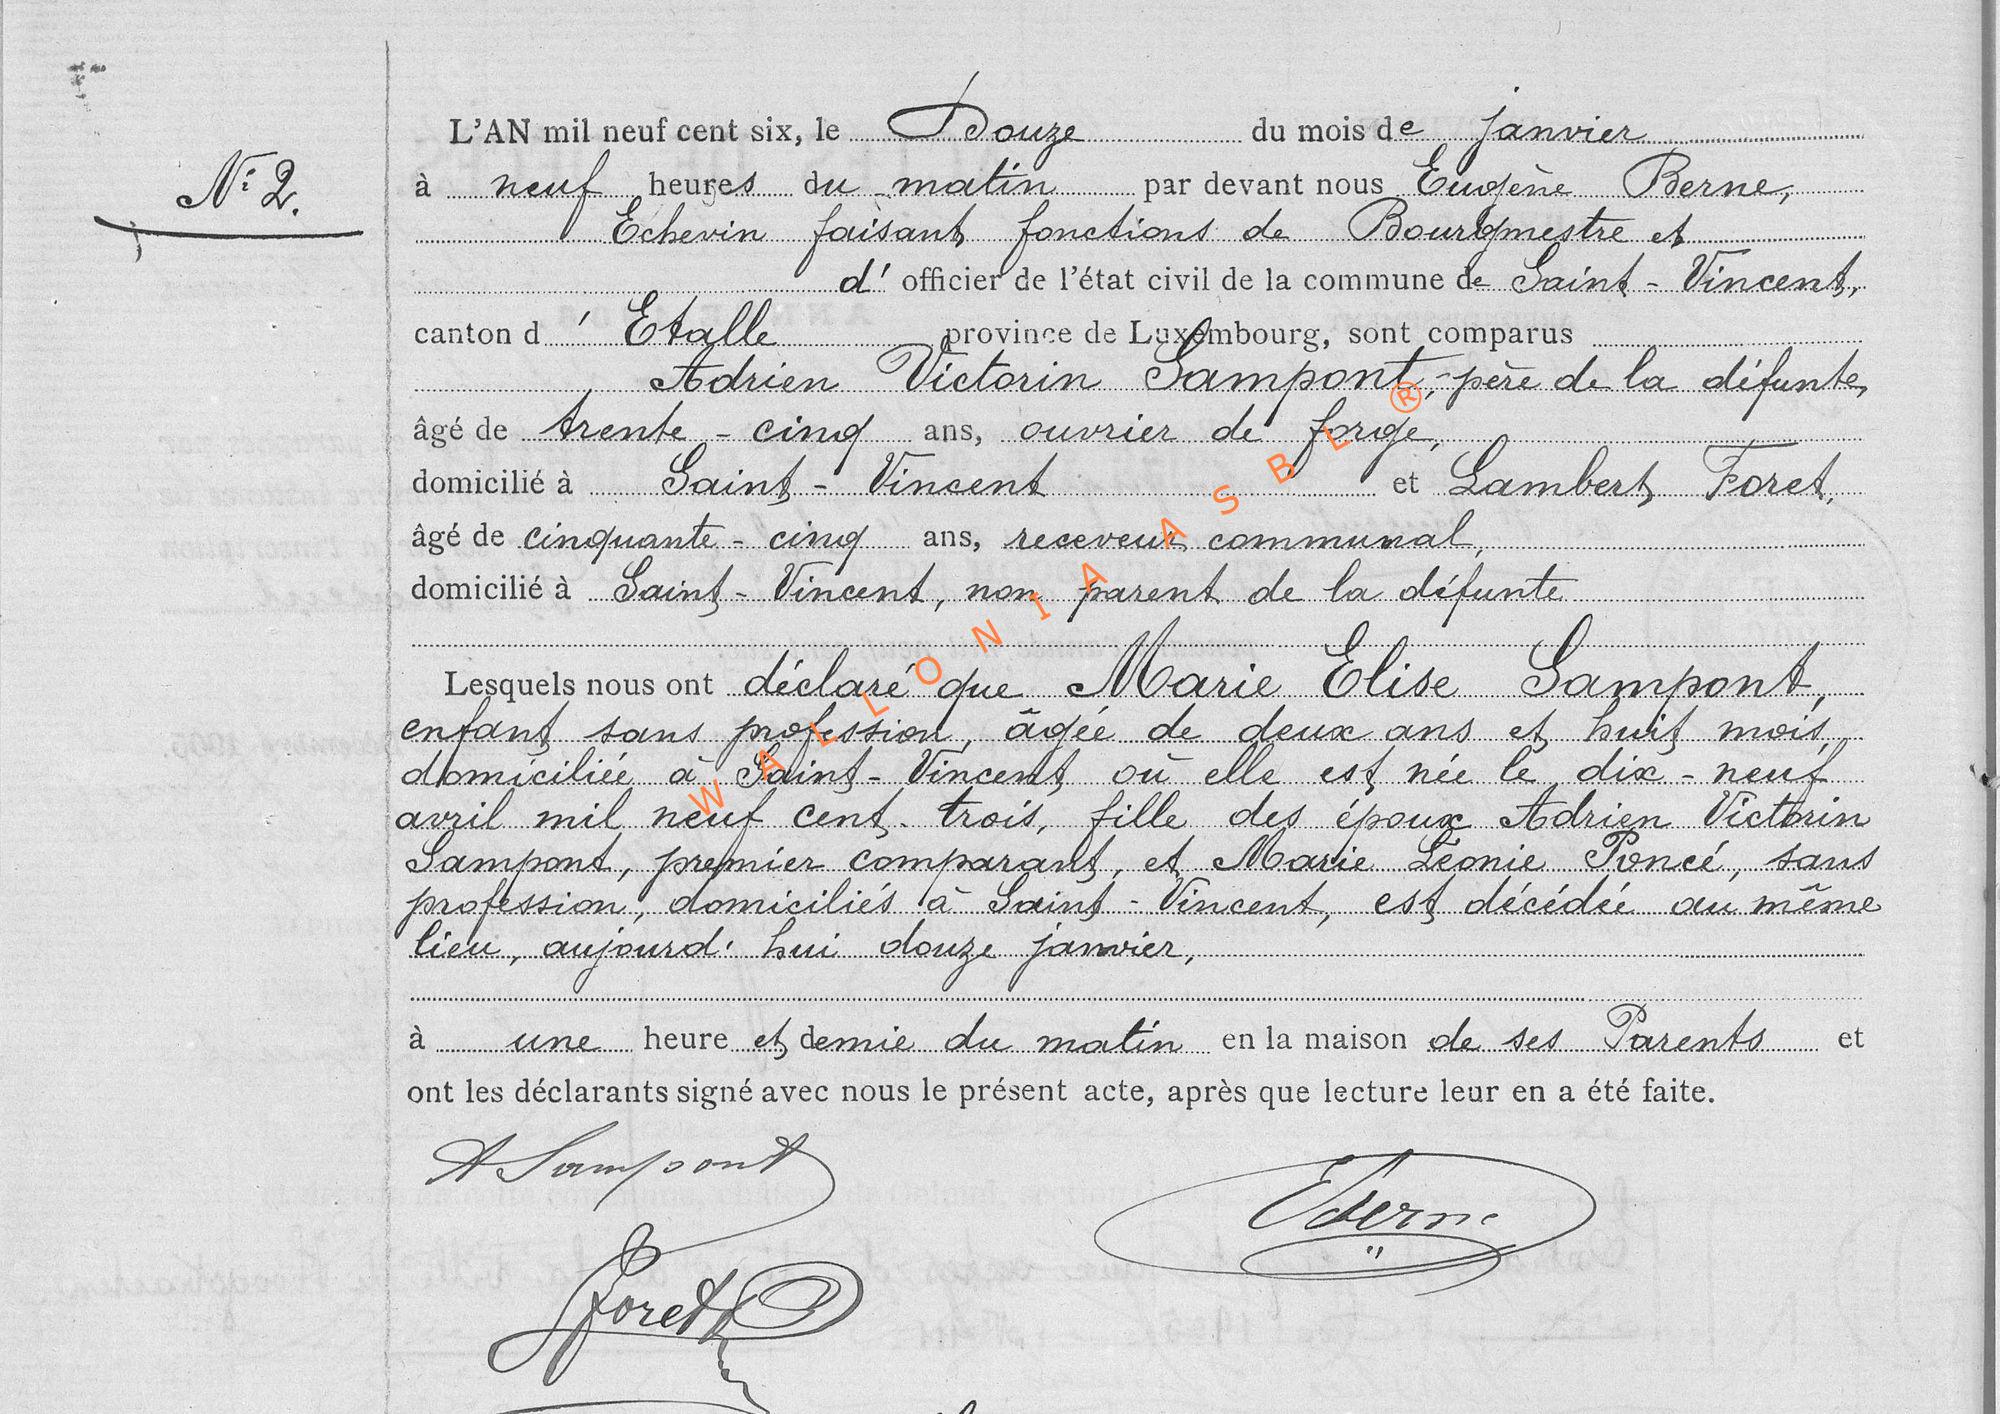 L'AN mil neuf cent six, le Douze du mois de janvier
N° 2.
à neuf heures du matin par devant nous Eugène Berne,
Echevin faisant fonctions de Bourgmestre et
d' officier de l'état civil de la commune de Saint-Vincent,
canton d'Etalle province de Luxembourg, sont comparus
Adrien Victorin Sampont, père de la défunte,
âgé de trente-cinq ans, ouvrier de forge,
domicilié à Saint-Vincent et Lambert Foret,
âgé de cinquante-cinq ans, receveur communal,
domicilié à Saint-Vincent, non parent de la défunte
Lesquels nous ont déclaré que Marie Elise Sampont,
enfant sans profession, âgée de deux ans et huit mois,
domiciliée à Saint-Vincent où elle est née le dix-neuf
avril mil neuf cent trois, fille des époux Adrien Victorin
Sampont, premier comparant, et Marie Léonie Poncé, sans
profession, domiciliés à Saint-Vincent, est décédée au même
lieu, aujourd'hui douze janvier,
à une heure et demie du matin en la maison de ses Parents et
ont les déclarants signé avec nous le présent acte, après que lecture leur en a été faite.
A Sampont
EBerne
Foret
WALLONIA ASBL ®